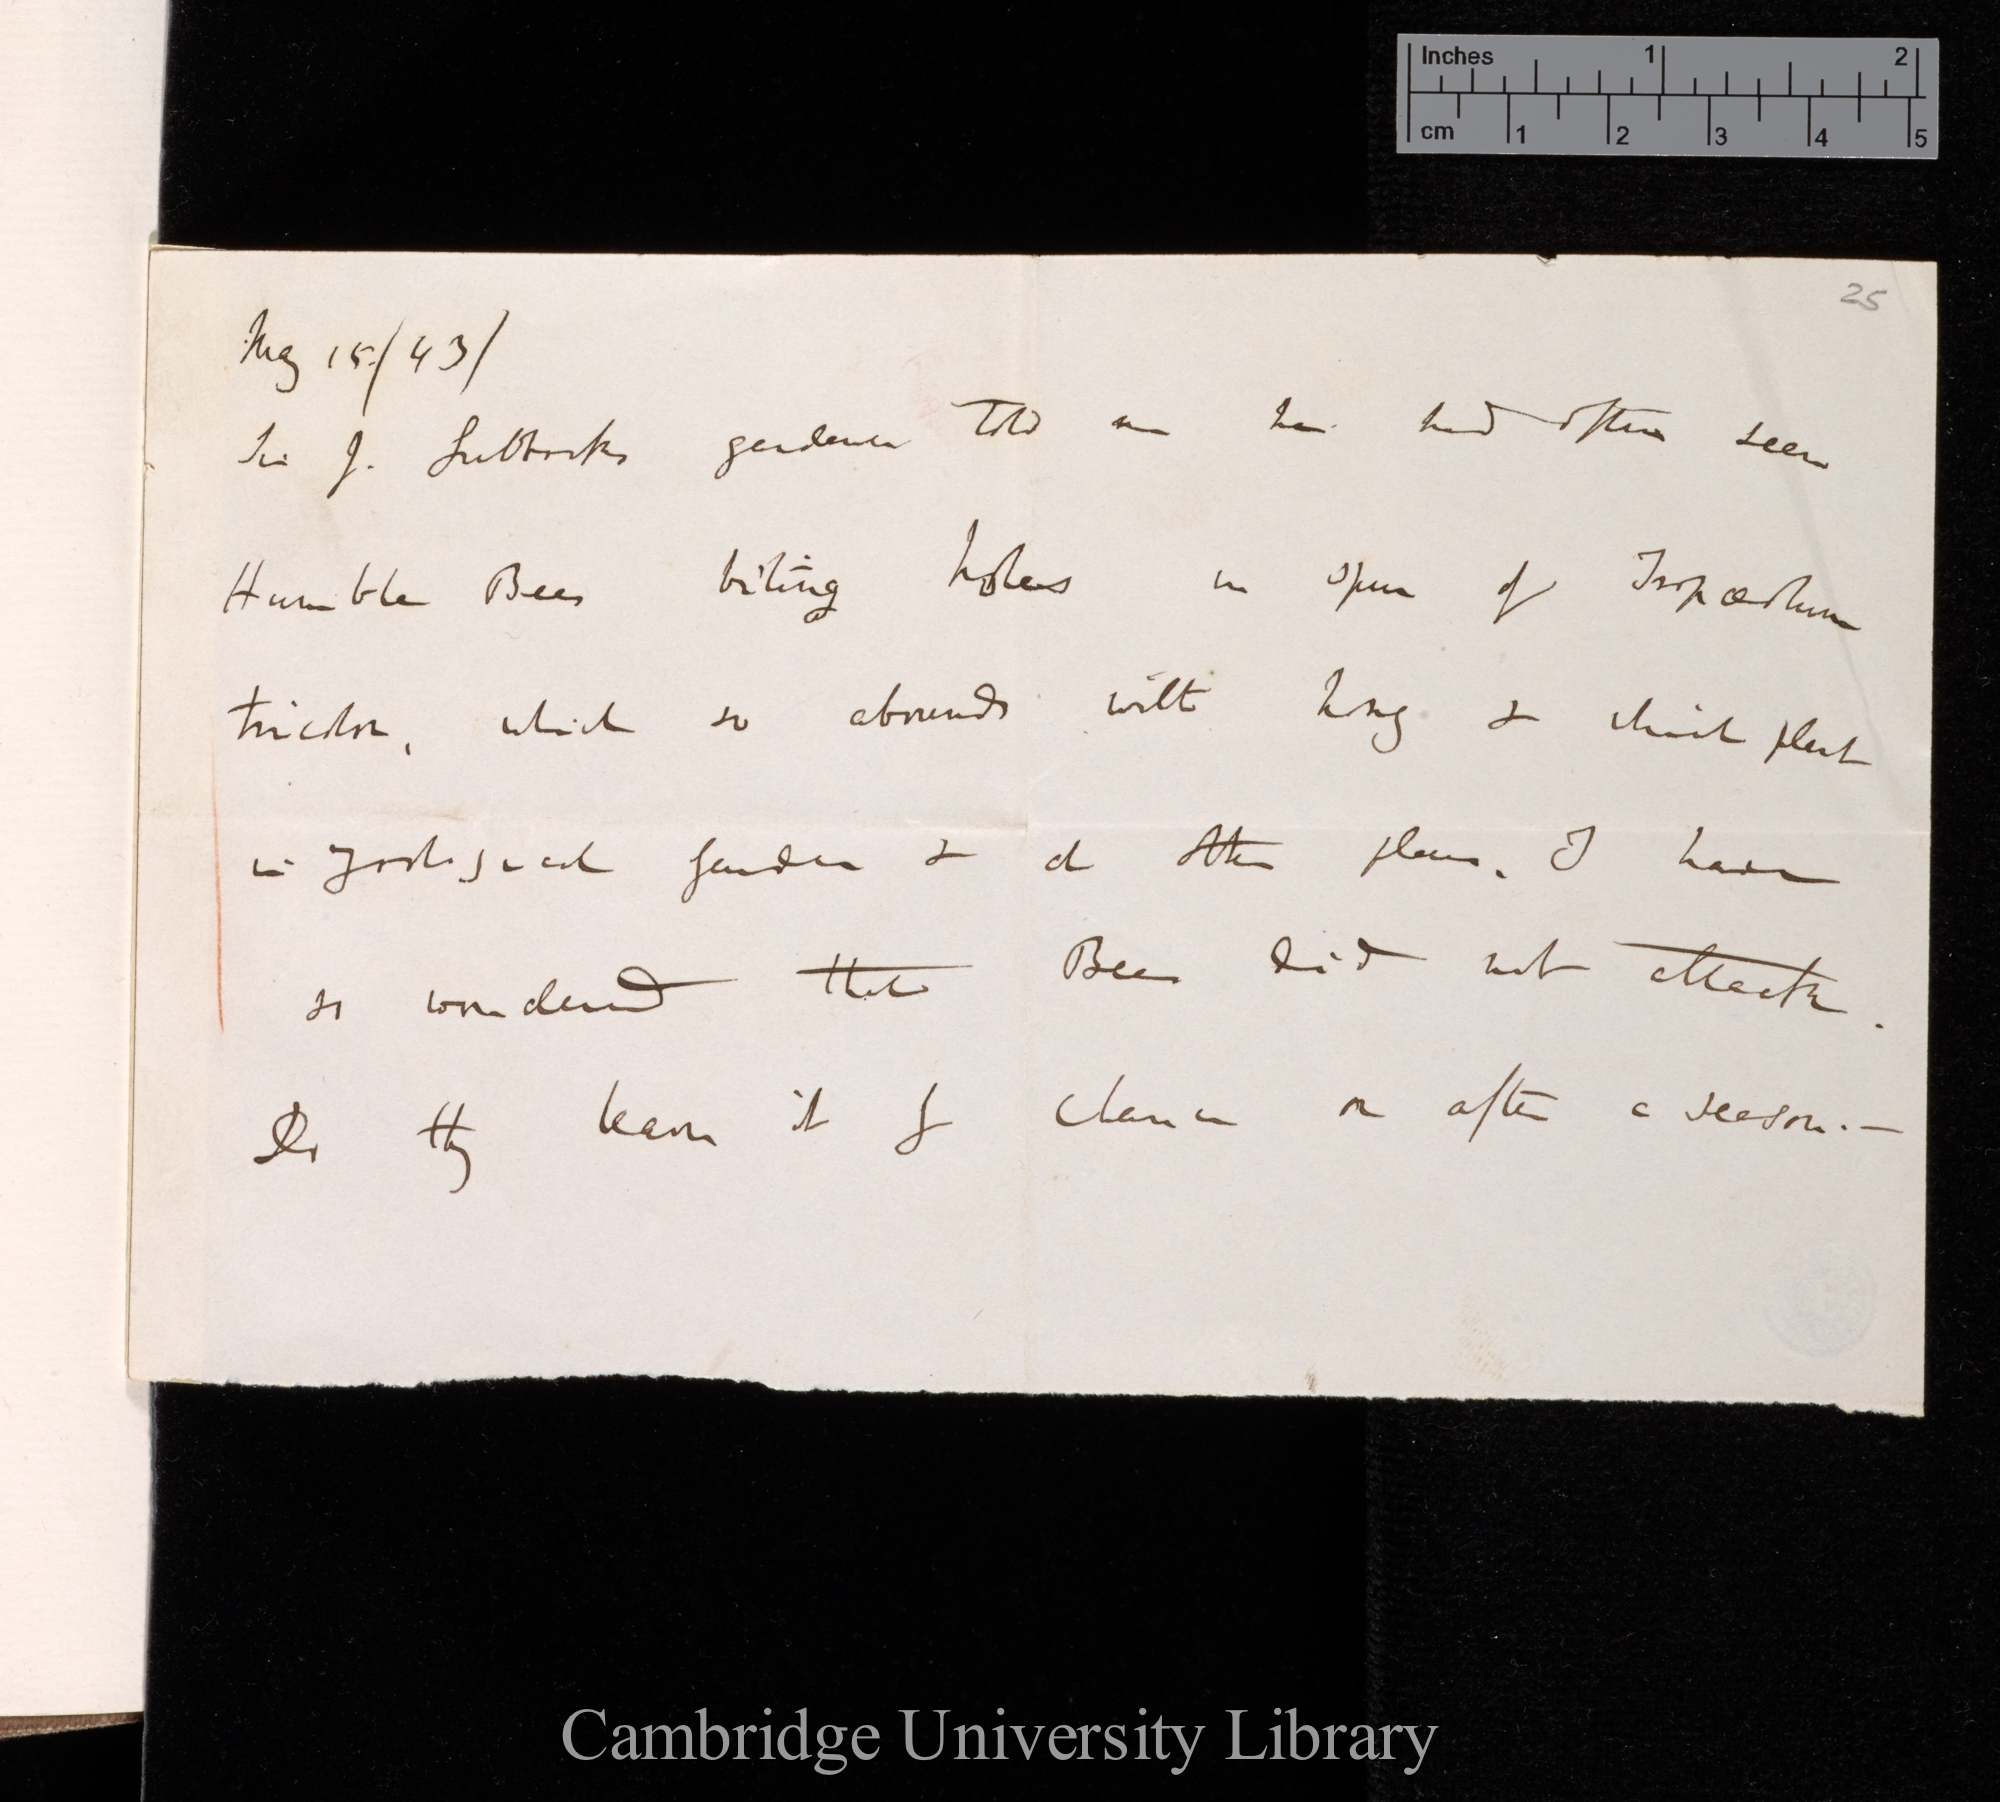 Inches 1 2
cm 1 2 3 4 5
25
May 15/43/
Sir J. Lubbocks gardener told me he had often seen
Humble Bees biting holes in spur of Tropæolum
tricolor, which so abounds with honey & which plant
in Zoological Garden & at other places. I have
so wondered that Bees did not attack.
Do they learn it by chance or after a season.—
Cambridge University Library